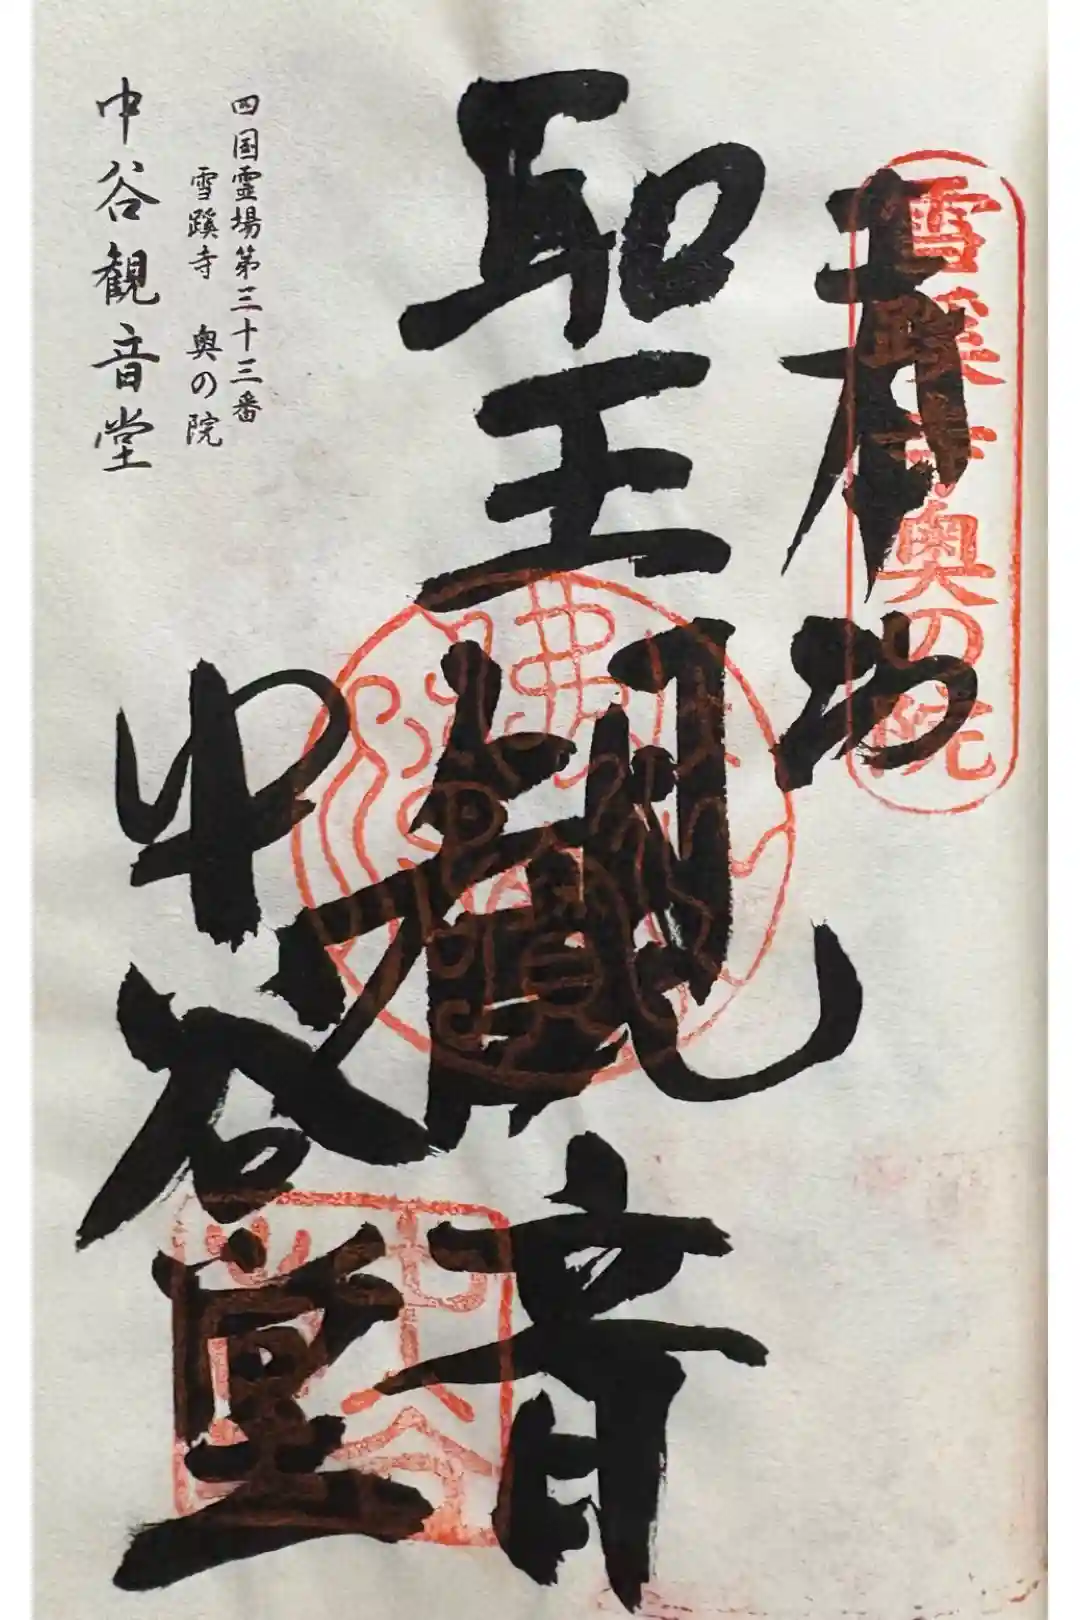 奉
雪蹊寺奥の院
聖観音
中谷堂
四国霊場第三十三番
雪蹊寺 奥の院
中谷観音堂